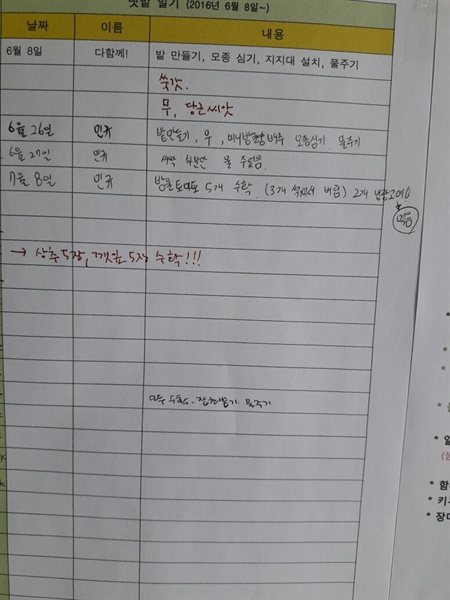 텃밭 일기 (2016년 6월 8일~)
날짜 이름 내용
6월 8일 다함께! 밭 만들기, 모종 심기, 지지대 설치, 물주기
쑥갓.
무, 당근씨앗
6월 26일 민규 밭만들기, 무, 미니 배추 모종심기 물주기
6월 27일 민규 새싹 부분만 물 주었음.
7월 8일 민규 방울토마토 5개 수확. (3개 썩어서 버림) 2개 냉장고에
→ 상추 5장, 깻잎 5장 수확!!!
물주기
* 함
* 키
* 장